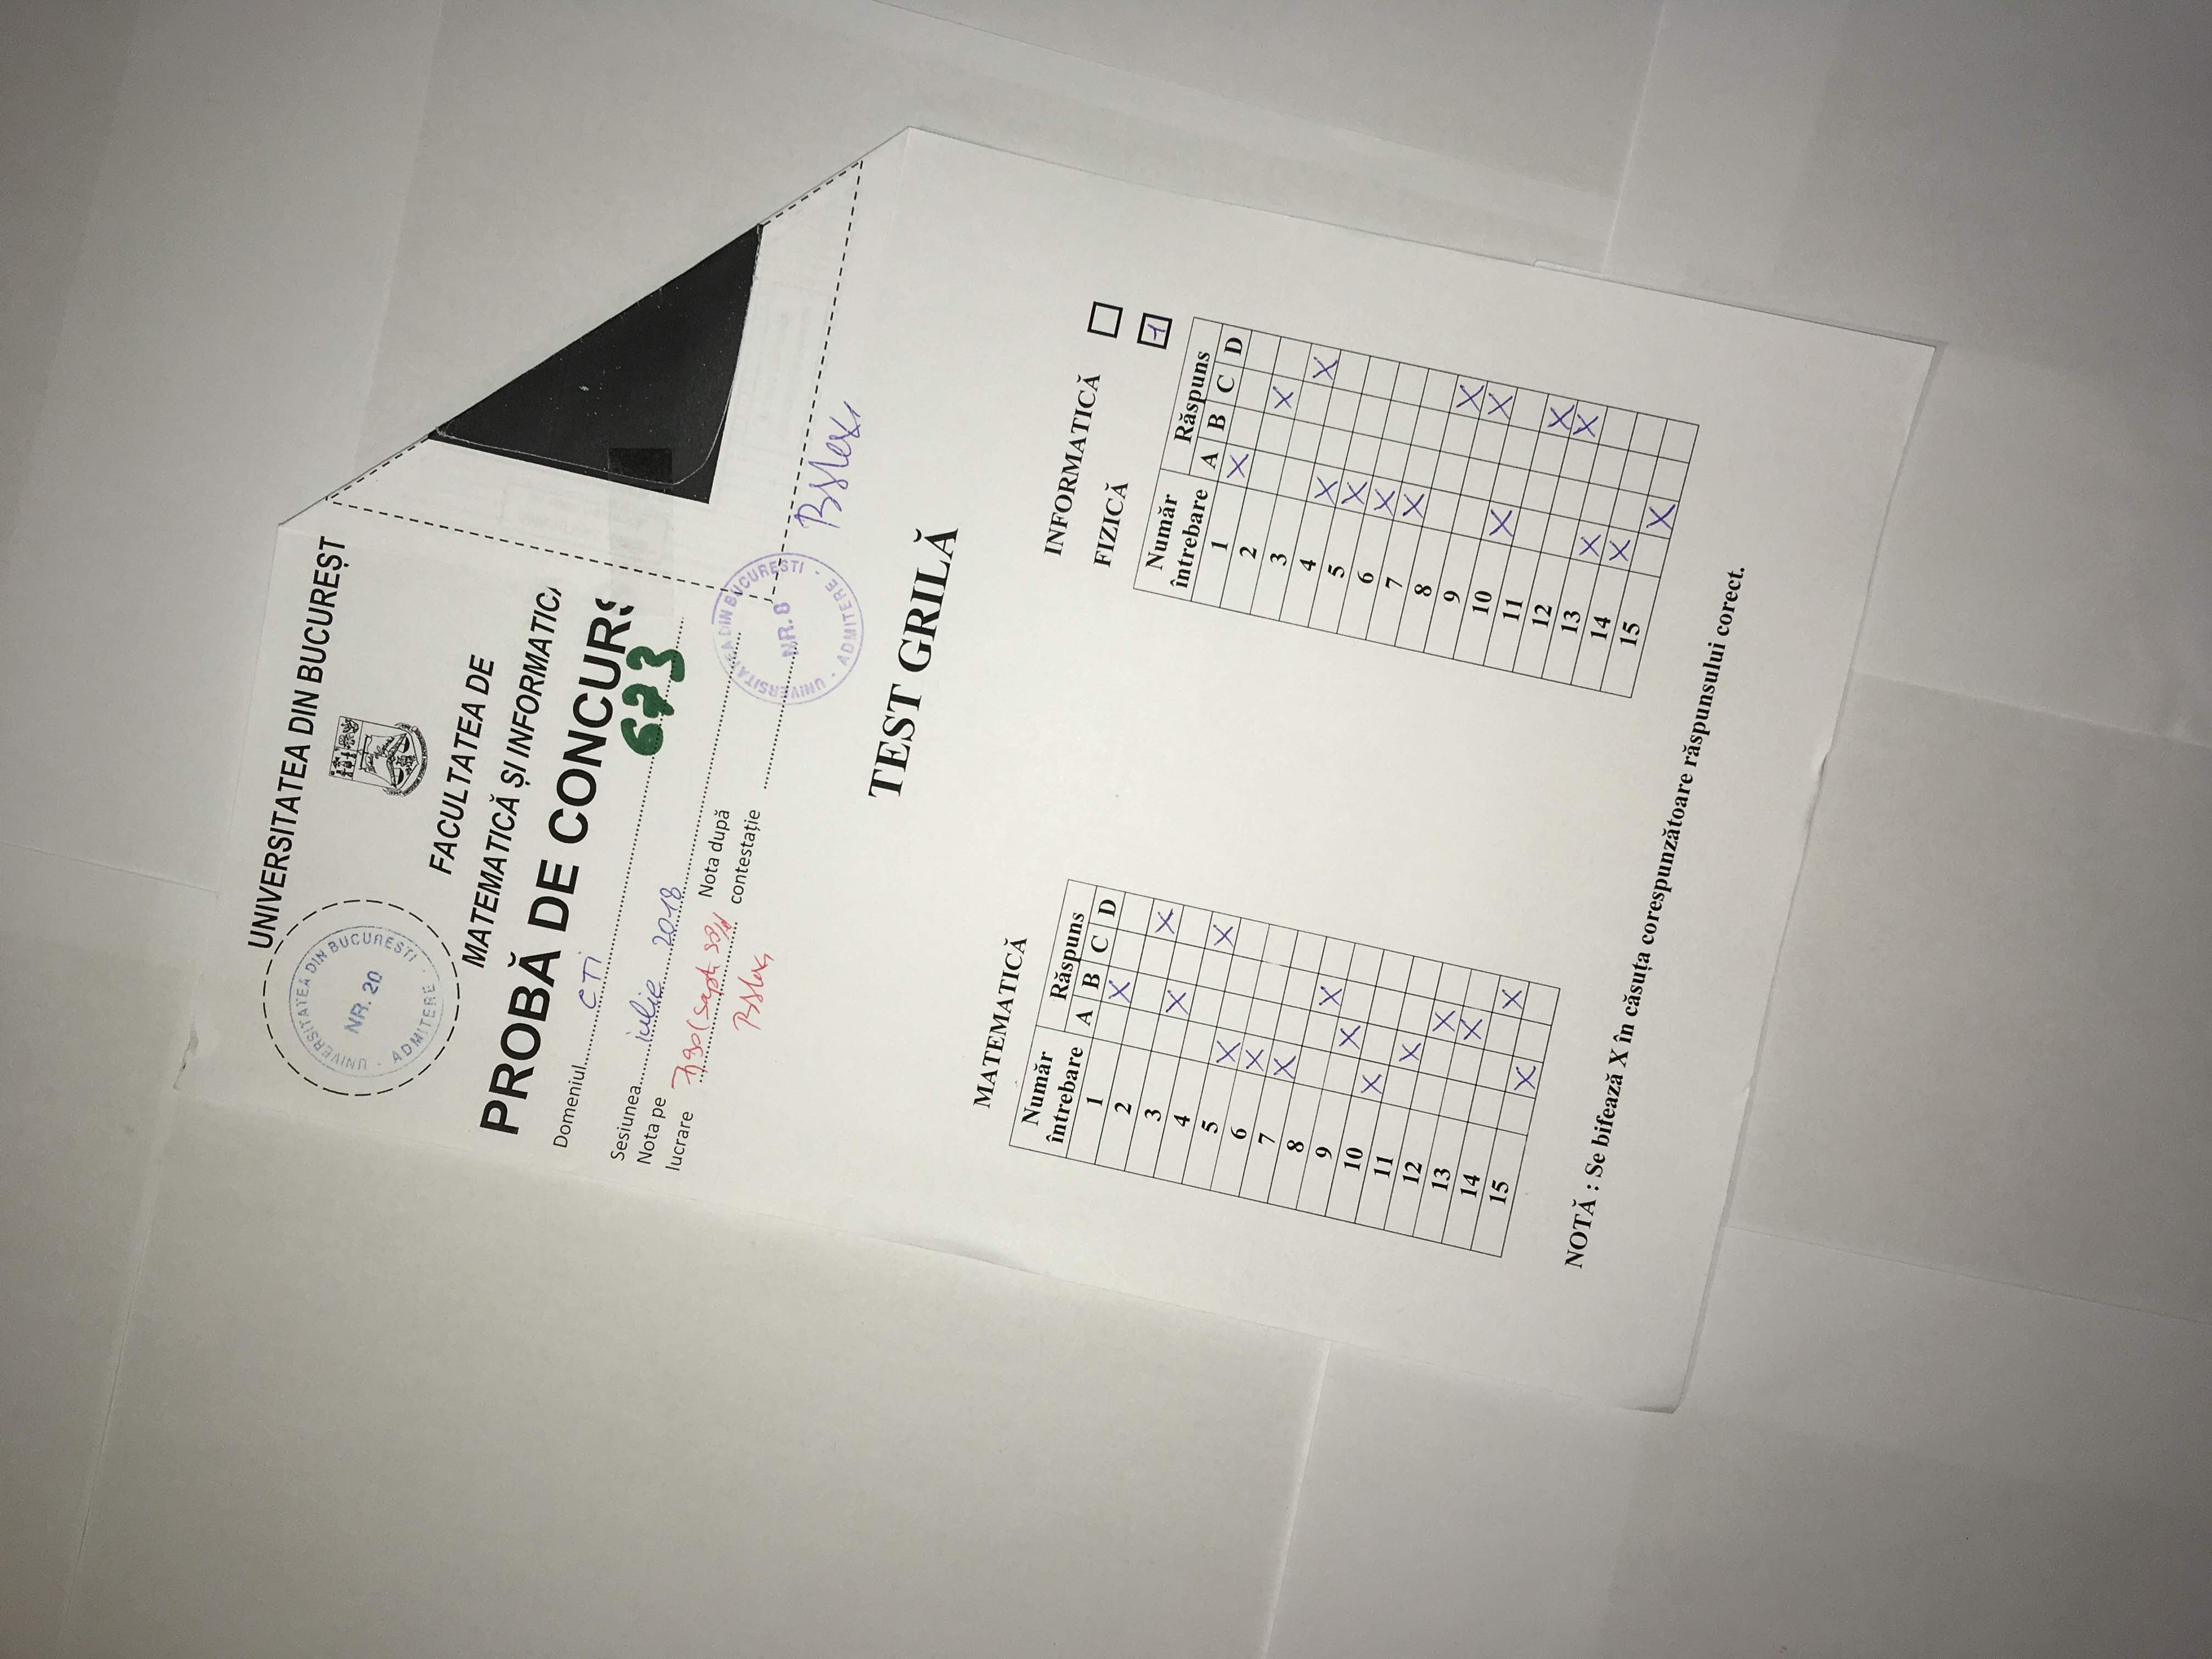 UNIVERSITATEA DIN BUCUREȘT
UNIVERSITATEA DIN BUCURESTI
NR. 20
ADMITERE
FACULTATEA DE
MATEMATICĂ ȘI INFORMATICA
PROBĂ DE CONCURS
Domeniul CTi
673
Sesiunea iulie 2018
Nota pe
lucrare
Nota după
contestație
UNIVERSITATEA DIN BUCURESTI
NR. 8
ADMITERE
TEST GRILĂ
MATEMATICĂ
Număr
întrebare
Răspuns
A B C D
1 X
2 X
3 X
4 X
5 X
6 X
7 X
8 X
9 X
10 X
11 X
12 X
13 X
14 X
15 X
INFORMATICĂ
FIZICĂ 1
Număr
întrebare
Răspuns
A B C D
1 X
2 X
3 X
4 X
5 X
6 X
7 X
8 X
9 X
10 X
11 X
12 X
13 X
14 X
15 X
NOTĂ : Se bifează X în căsuța corespunzătoare răspunsului corect.